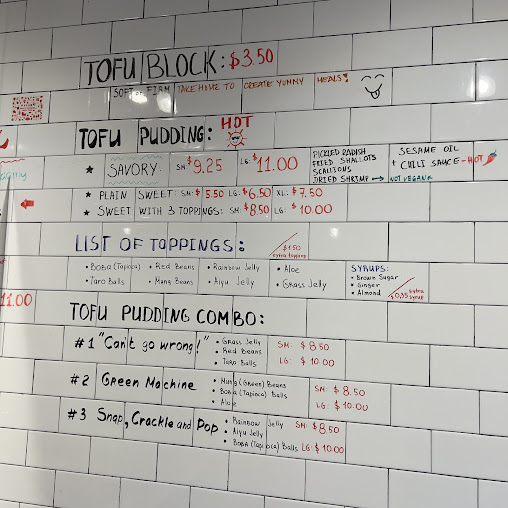 TOFU BLOCK: $3.50
SOFT & FIRM TAKE HOME TO CREATE YUMMY MEALS!
TOFU PUDDING: HOT
★ SAVORY: SM: $9.25 LG: $11.00
PICKLED RADISH
FRIED SHALLOTS
SCALLIONS
DRIED SHRIMP → NOT VEGAN
SESAME OIL
+ CHILI SAUCE - HOT
★ PLAIN SWEET: SM: $5.50 LG: $6.50 XL: $7.50
★ SWEET WITH 3 TOPPINGS: SM: $8.50 LG: $10.00
LIST OF TOPPINGS:
$1.50
extra topping
• Boba (Tapioca) • Red Beans • Rainbow Jelly • Aloe
• Taro Balls • Mung Beans • Aiyu Jelly • Grass Jelly
SYRUPS:
• Brown Sugar
• Ginger
• Almond
$0.95 extra
syrup
11.00
TOFU PUDDING COMBO:
#1 "Can't go wrong!"
• Grass Jelly
• Red Beans
• Taro Balls
SM: $8.50
LG: $10.00
#2 Green Machine
• Mung (Green) Beans
• Boba (Tapioca) Balls
• Aloe
SM: $8.50
LG: $10.00
#3 Snap, Crackle and Pop
• Rainbow Jelly
• Aiyu Jelly
• Boba (Tapioca) Balls
SM: $8.50
LG: $10.00